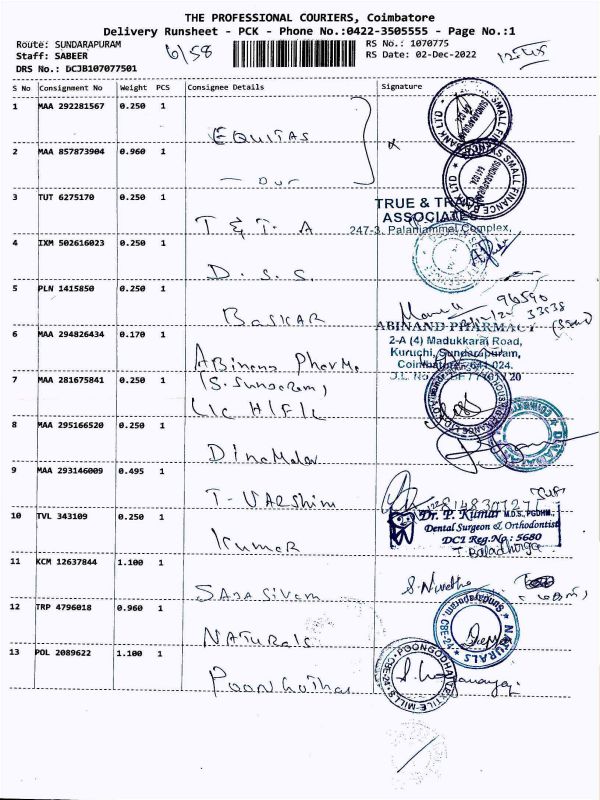 THE PROFESSIONAL COURIERS, Coimbatore
Delivery Runsheet - PCK - Phone No.:0422-3505555 - Page No.:1
Route: SUNDARAPURAM
6/58
RS No.: 1070775
Staff: SABEER
RS Date: 02-Dec-2022
DRS No.: DCJB107077501
S No Consignment No Weight PCS Consignee Details Signature
1 MAA 292281567 0.250 1 EQUITAS
2 MAA 857873904 0.960 1 - DO -
3 TUT 6275170 0.250 1 T & T. A
TRUE & TRADE
ASSOCIATES
247-3, Palaniammal Complex,
4 IXM 502616023 0.250 1 D. S. S.
5 PLN 1415850 0.250 1 BASKAR
96590
33538
ABINAND PHARMACY
2-A (4) Madukkarai Road,
Kuruchi, Sundarapuram,
Coimbatore - 641 024.
6 MAA 294826434 0.170 1 Abinans Pharma
7 MAA 281675841 0.250 1 (S. Sundaram)
LIC H/F/L
8 MAA 295166520 0.250 1 DinaMalar
9 MAA 293146009 0.495 1 T. VARShini
10 TVL 343109 0.250 1 KUMAR
Dr. P. Kumar M.D.S., PGDHM.,
Dental Surgeon & Orthodontist
DCI Reg.No.: 5680
11 KCM 12637844 1.100 1 SADASIVAM
12 TRP 4796018 0.960 1 NATURALS
★ NATURALS ★ Sundarapuram, CBE-24
13 POL 2089622 1.100 1 POONGOTHAI
POONGODHAI TEXTILE MILLS CBE-24